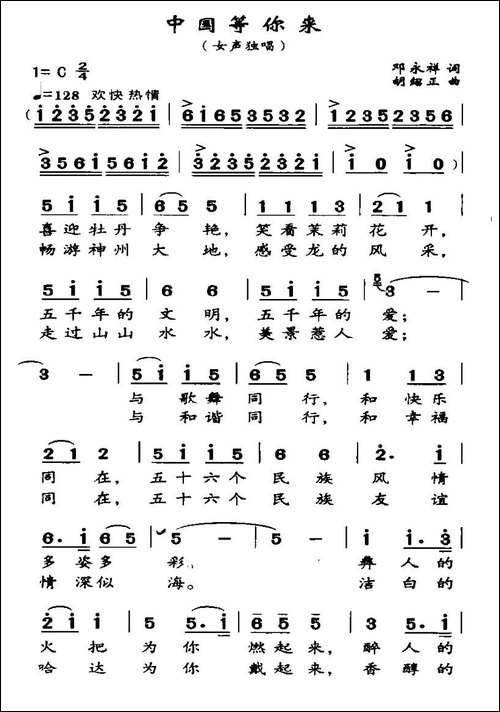 中国等你来
（女声独唱）
1=C 2/4
邓永祥 词
♩=128 欢快 热情
胡绍正 曲
（1 2 3 2 5 2 3 2 1 | 6 1 6 5 3 5 3 2 | 5 3 5 2 3 5 3 2 | 1 2 3 5 2 3 5 6 |
3 5 6 1 5 6 1 2 | 3 2 3 5 2 3 2 1 | 1 0 | 1 0 ）|
5 1 1 5 | 6 5 5 | 1 1 1 3 | 2 1 1 |
喜迎牡丹 争 艳， 笑看茉莉 花 开，
畅游神州 大 地， 感受龙的 风 采，
5 1 1 5 | 6 6 | 5 1 1 5 | 5 3 － |
五千年的 文 明， 五千年的 爱；
走过山山 水 水， 美景惹人 爱；
3 － | 5 1 1 5 | 6 5 5 | 1 1 3 |
与 歌舞 同 行， 和 快乐
与 和谐 同 行， 和 幸福
2 1 2 | 5 1 1 5 | 6 6 | 2. 1 |
同 在， 五十六个 民 族 风 情
同 在， 五十六个 民 族 友 谊
6. 1 6 5 | 5 － | 5 － | 1 1. 3 |
多姿多 彩， 彝 人的
情深似 海。 洁 白的
2 1 1 | 5 5. 1 | 6 5 5 | 3 5. 1 |
火 把 为 你 燃起来， 醉 人的
哈 达 为 你 戴起来， 香 醇的